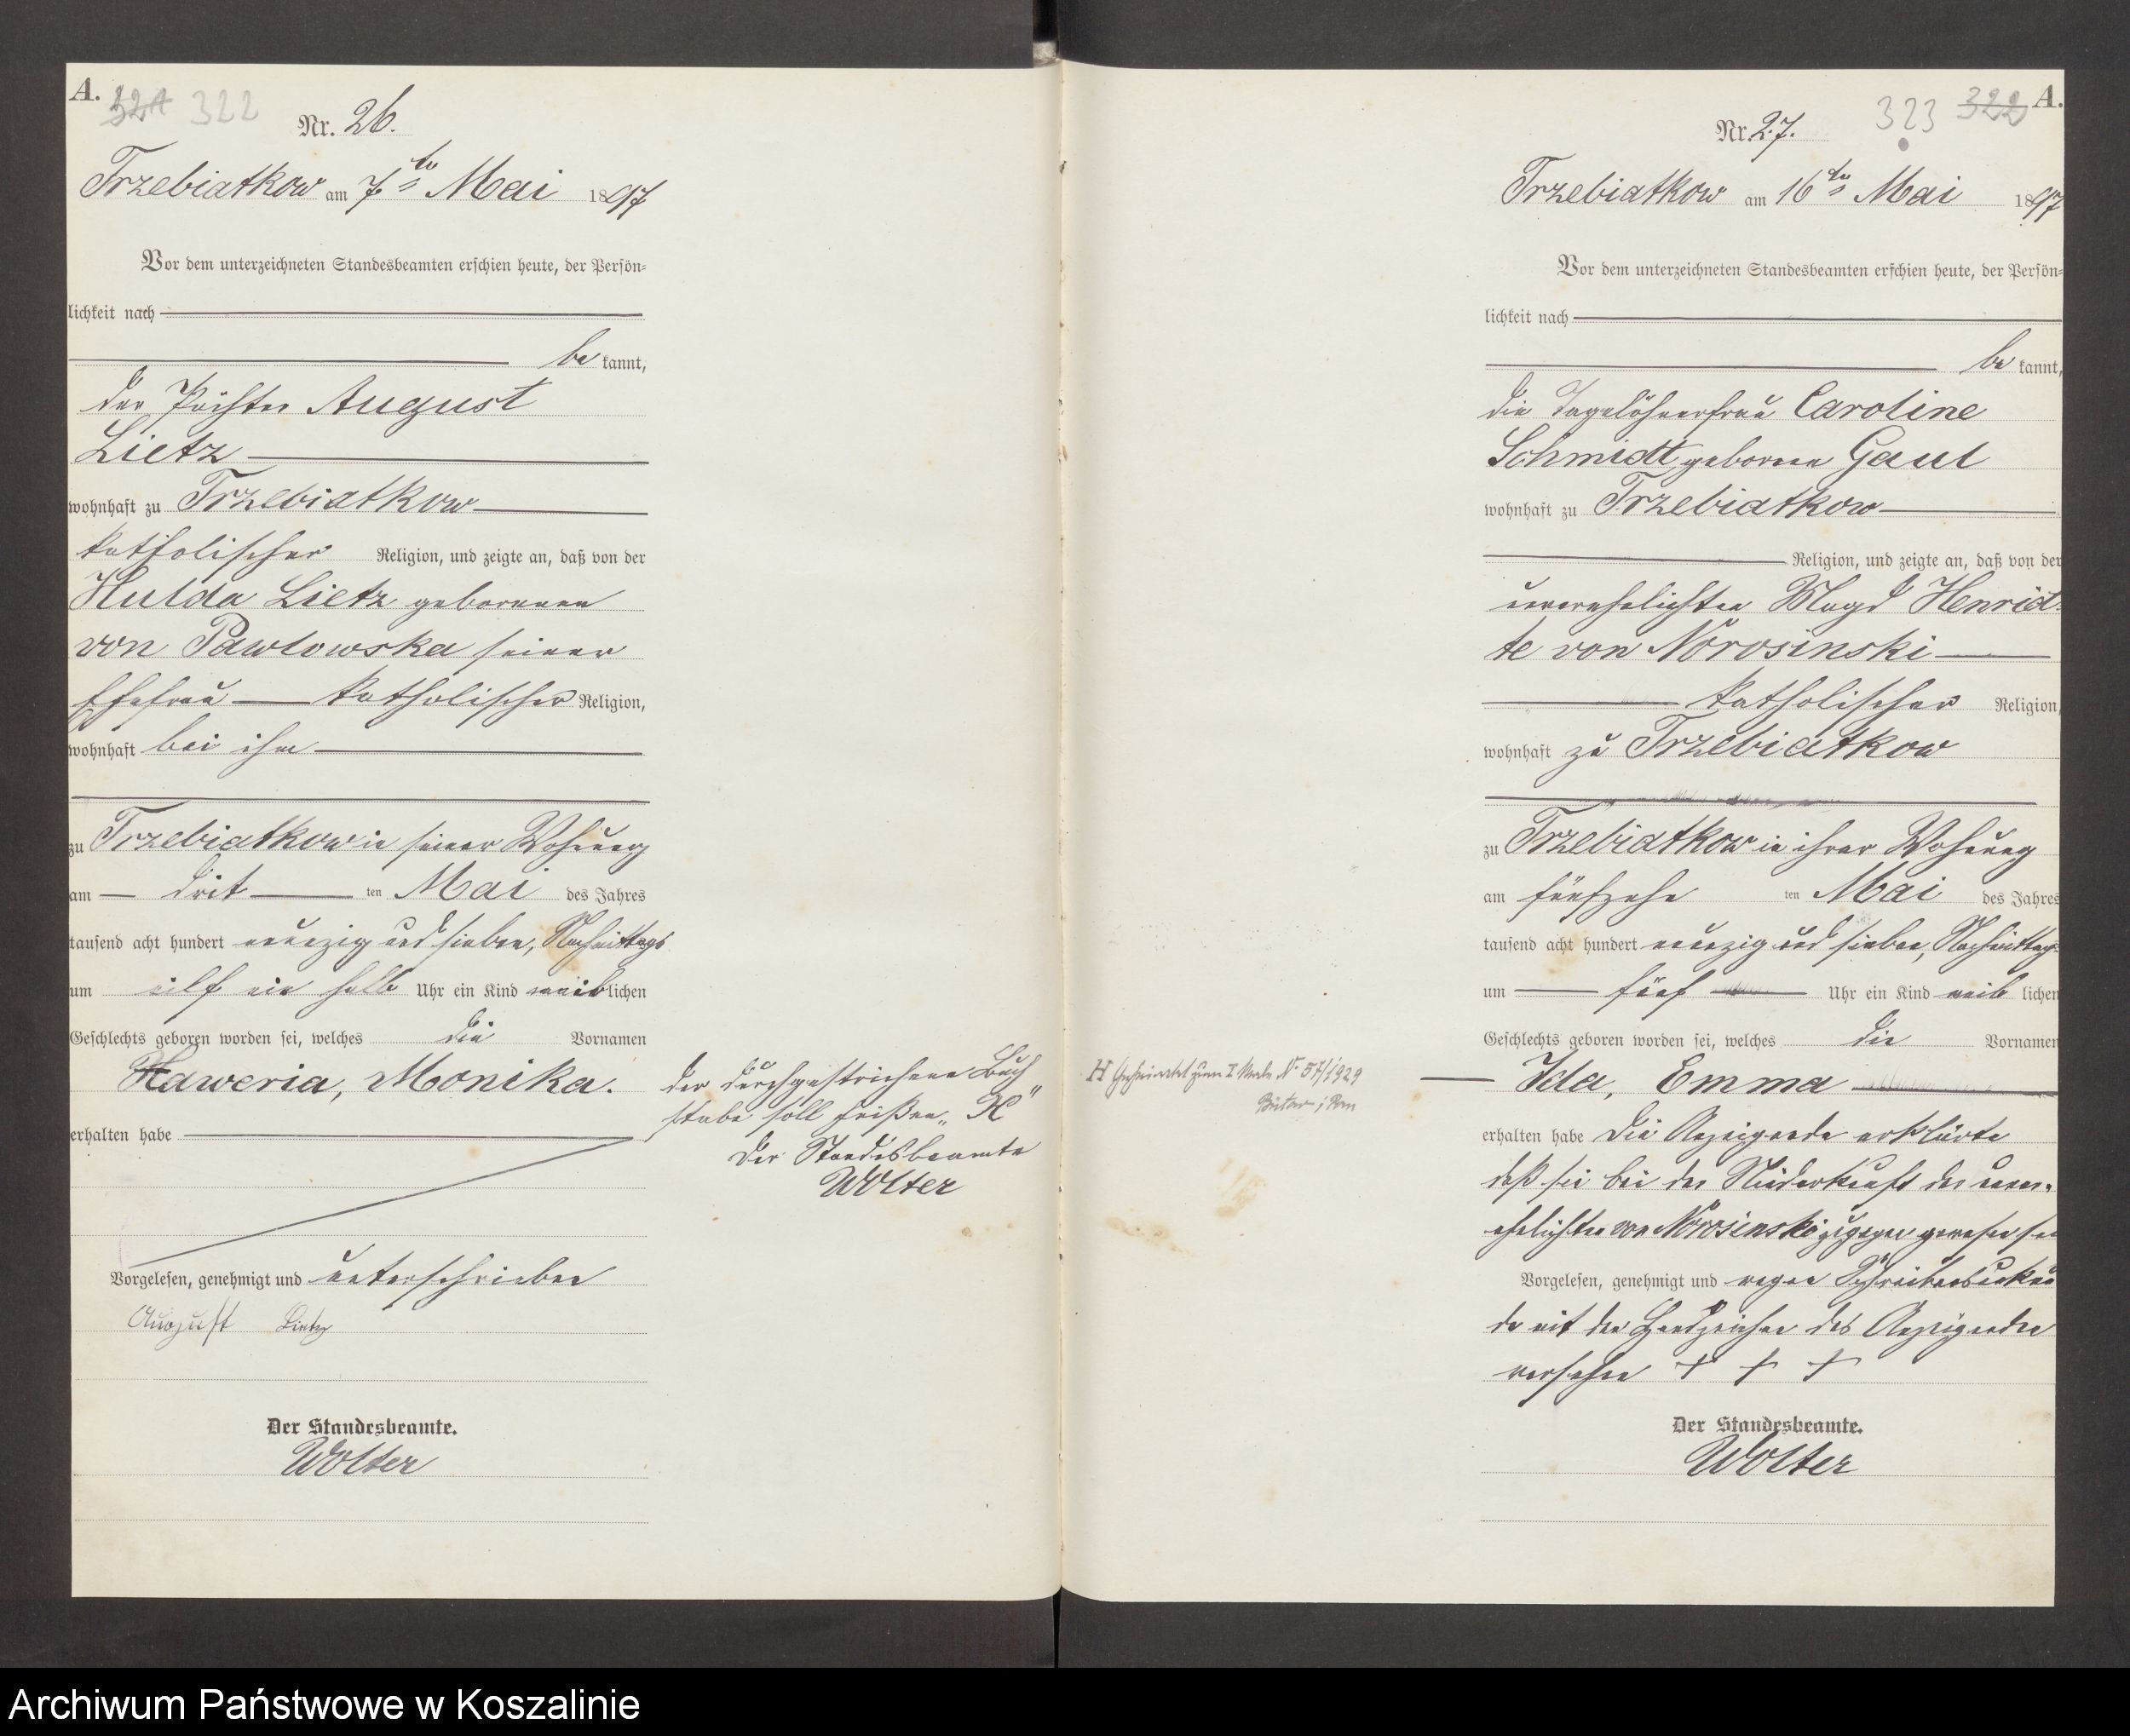 A.
321 322
Nr. 26.
Trzebiatkow am 7ten Mai 1897
Vor dem unterzeichneten Standesbeamten erschien heute, der Persön=
lichkeit nach
be kannt,
der Pächter August
Lietz
wohnhaft zu Trzebiatkow
katholischer Religion, und zeigte an, daß von der
Hulda Lietz geborenen
von Pawlowska seiner
Ehefrau katholischer Religion,
wohnhaft bei ihm
zu Trzebiatkow in seiner Wohnung
am drit ten Mai des Jahres
tausend acht hundert neunzig und sieben, Nachmittags
um eilf ein halb Uhr ein Kind weiblichen
Geschlechts geboren worden sei, welches die Vornamen
Xaweria, Monika.
erhalten habe
Vorgelesen, genehmigt und unterschrieben
August Lietz
Der Standesbeamte.
Wolter
der durchgestrichene Buch
stabe soll heißen „X"
Der Standesbeamte
Wolter
A.
323 322
Nr. 27.
Trzebiatkow am 16ten Mai 1897
Vor dem unterzeichneten Standesbeamten erschien heute, der Persön=
lichkeit nach
be kannt,
die Tagelöhnerfrau Caroline
Schmidt geborene Gaul
wohnhaft zu Trzebiatkow
Religion, und zeigte an, daß von der
unverehelichten Magd Henriet=
te von Wrosinski
katholischer Religion,
wohnhaft zu Trzebiatkow
zu Trzebiatkow in ihrer Wohnung
am fünfzehn ten Mai des Jahres
tausend acht hundert neunzig und sieben, Nachmittags
um fünf Uhr ein Kind weib lichen
Geschlechts geboren worden sei, welches die Vornamen
Ida, Emma
erhalten habe Die Anzeigende erklärte
daß sie bei der Niederkunft der unver=
ehelichten von Wrosinski zugegen gewesen sei
Vorgelesen, genehmigt und wegen Schreibensunkun
de mit den Handzeichen des Anzeigenden
versehen + + +
Der Standesbeamte.
Wolter
H Geheiratet zum I Male № 57/1929
Bütow i Pom
Archiwum Państwowe w Koszalinie